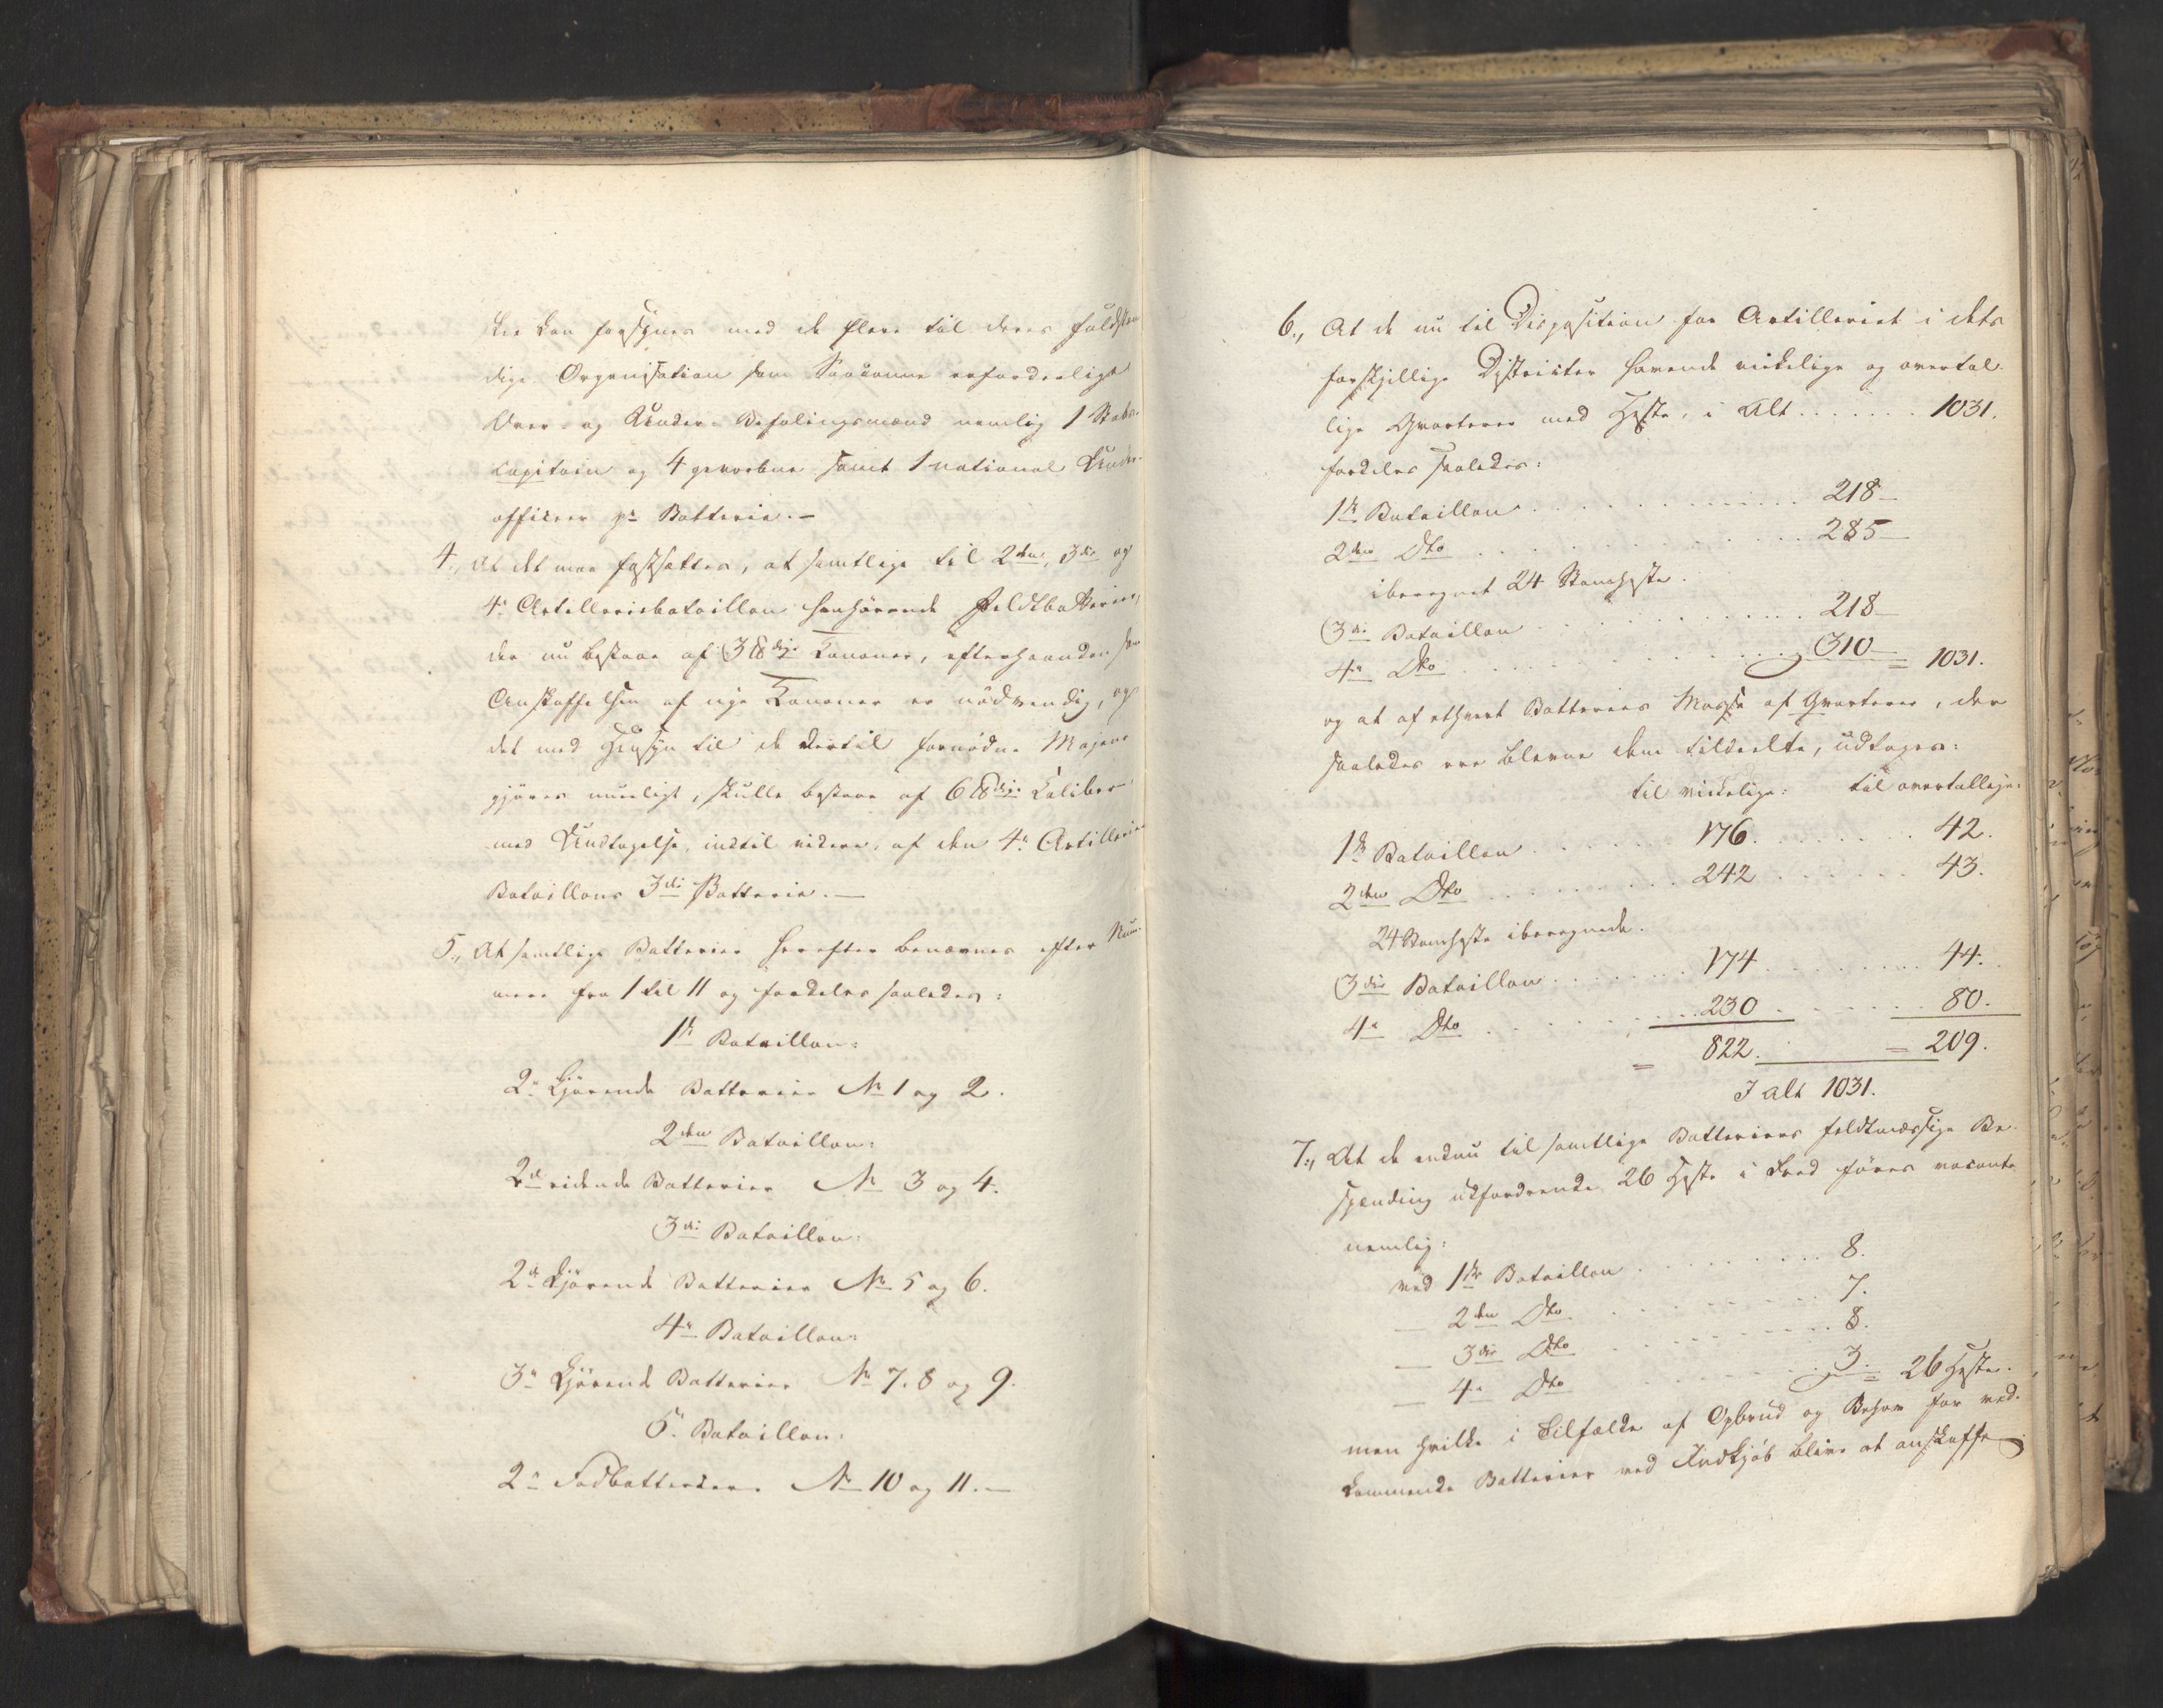 der kan forsynes med de flere til deres fuldstæn
dige Organisation som Saadanne erforderlige
Over- og Under-Befalingsmænd nemlig 1 Stabs-
capitain og 4 gevorbne samt 1 national Under-
officeer pr Batterie.-
4., At det maa fastsættes, at samtlige til 2den, 3die og
4e Artilleriebataillon henhörende Feldtbatterier,
der nu bestaae af 3 ℔dige Kanoner, efterhaanden som
Anskaffelsen af nye Kanoner er nödvendig, og
det med Hensyn til de dertil fornödne Mojens
gjöres mueligt, skulle bestaae af 6 ℔dige Caliber
med Undtagelse, indtil videre, af den 4e Artillerie
Bataillons 3die Batterie.-
5., At samtlige Batterier herefter benævnes efter Num-
mere fra 1 til 11 og fordeles saaledes:
1te Bataillon:
2e Kjörende Batterier No 1 og 2.
2den Bataillon:
2de ridende Batterier No 3 og 4.
3die Bataillon:
2de Kjörende Batterier No 5 og 6.
4e Bataillon:
3e Kjörende Batterier No 7, 8 og 9.
5e Bataillon:
2e Fodbatterier No 10 og 11.-
6., At de nu til Disposition for Artilleriet i dets
forskjellige Districter havende virkelige og overtal-
lige Qvarterer med Heste, i Alt ...... 1031.
fordeles saaledes:
1te Bataillon ............ 218-
2den Dto ............ 285-
iberegnet 24 Stamheste.
3die Bataillon ............ 218-
4e Dto ............ 310- = 1031.
og at af ethvert Batteries Masse af Qvarterer, der
saaledes ere blevne dem tildeelte, udtages:
til virkelige: til overtallige:
1te Bataillon ...... 176. ...... 42.
2den Dto ...... 242 ...... 43.
24 Stamheste iberegnede.
3die Bataillon ...... 174 ...... 44.
4e Dto ...... 230 ...... 80.
= 822. = 209.
I alt 1031.
7., At de endnu til samtlige Batteriers feldtmæssige Be-
spending udfordrende 26 Heste i Fred föres vacante
nemlig:
ved 1te Bataillon ......... 8.
— 2den Dto ......... 7.
— 3die Dto ......... 8.
— 4e Dto ......... 3. = 26 Heste.
men hvilke i Tilfælde af Opbrud og Behov for ved-
kommende Batterier ved Indkjöb blive at anskaffe.